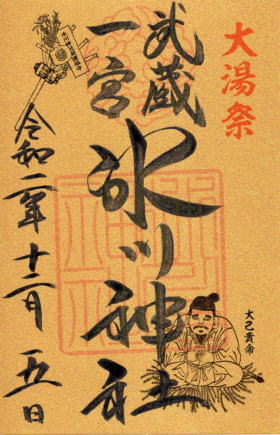 大湯祭
武蔵
一宮
氷川神社
大己貴命
令和二年十二月五日